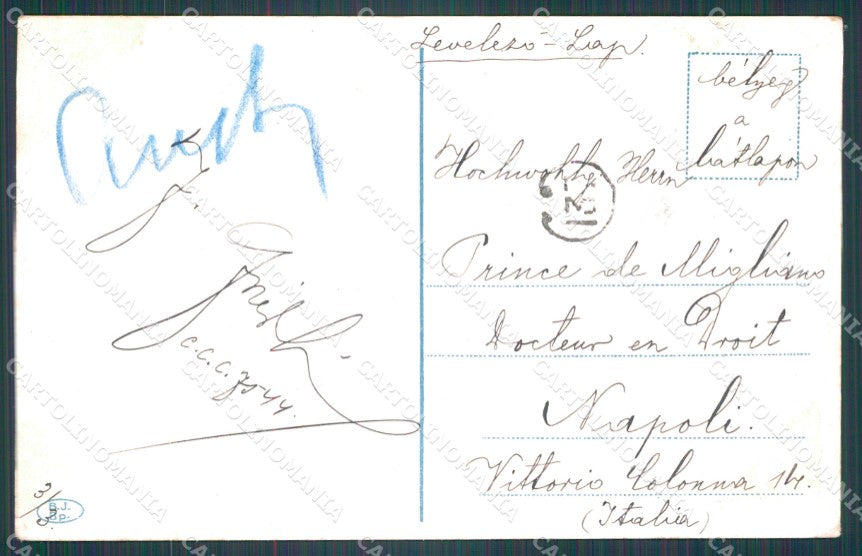 Levelező-Lap.
bélyeg
a
hátlapon
Hochwohlg Herrn
Prince de Migliano
Docteur en Droit
Napoli.
Vittorio Colonna 14.
(Italia)
C.C.C. 7544.
3/
B.J.
Bp.
CARTOLINOMANIA